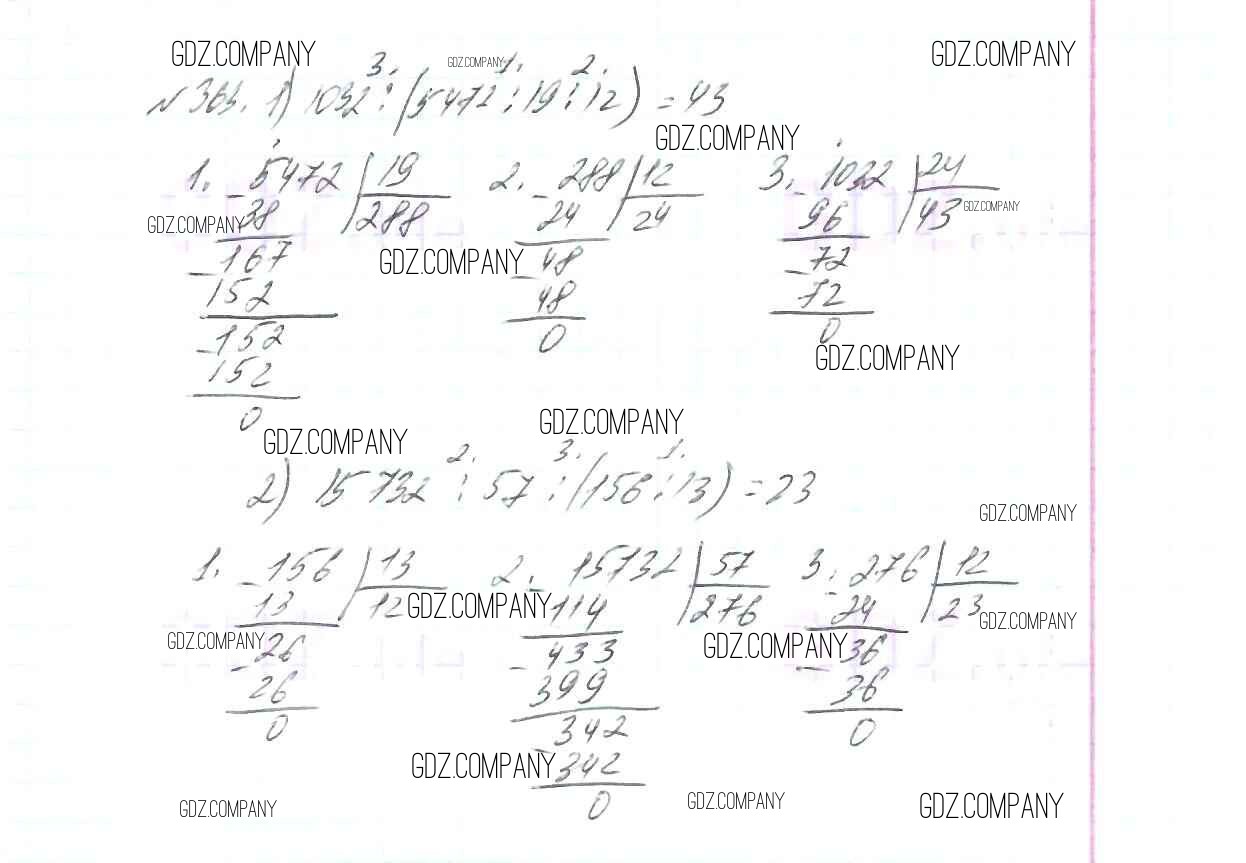 GDZ.COMPANY GDZ.COMPANY GDZ.COMPANY
3. 1. 2.
№ 363. 1) 1032 : (5472 : 19 : 12) = 43
GDZ.COMPANY
1. 5472 | 19 2. 288 | 12 3. 1032 | 24
GDZ.COMPANY 38 | 288 24 | 24 96 | 43 GDZ.COMPANY
167 GDZ.COMPANY 48 72
152 48 72
152 0 0
152 GDZ.COMPANY
0
GDZ.COMPANY GDZ.COMPANY
2. 3. 1.
2) 15732 : 57 : (156 : 13) = 23
GDZ.COMPANY
1. 156 | 13 2. 15732 | 57 3. 276 | 12
13 | 12 GDZ.COMPANY 114 | 276 24 | 23 GDZ.COMPANY
GDZ.COMPANY 26 433 GDZ.COMPANY 36
26 399 36
0 342 0
GDZ.COMPANY 342
0
GDZ.COMPANY GDZ.COMPANY GDZ.COMPANY